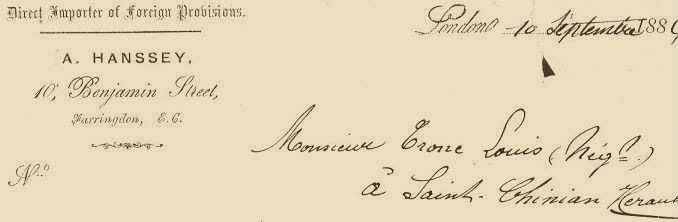 Direct Importer of Foreign Provisions.
A. HANSSEY,
10, Benjamin Street,
Farringdon, E.C.
Nº
London 10 Septembre 188
Monsieur Tronc Louis (Négt.)
à Saint-Chinian Herault